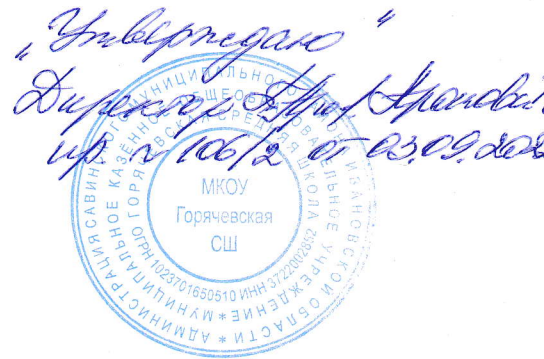 „Утверждаю"
Директор
пр. № 106/2 от 03.09.202
АДМИНИСТРАЦИЯ САВИНСКОГО МУНИЦИПАЛЬНОГО РАЙОНА ИВАНОВСКОЙ ОБЛАСТИ *
МУНИЦИПАЛЬНОЕ КАЗЁННОЕ ОБЩЕОБРАЗОВАТЕЛЬНОЕ УЧРЕЖДЕНИЕ *
ГОРЯЧЕВСКАЯ СРЕДНЯЯ ШКОЛА
ОГРН 1023701650510 ИНН 3722002852
МКОУ
Горячевская
СШ